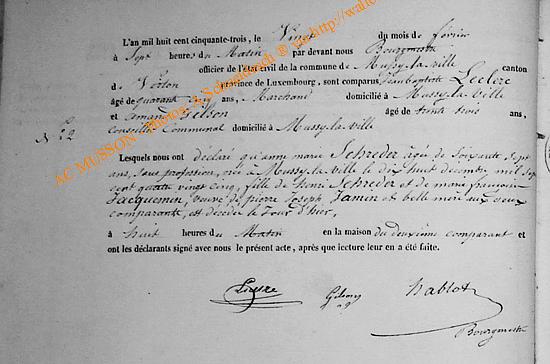 L'an mil huit cent cinquante-trois, le Vingt du mois de février
à Sept heures du Matin par devant nous Bourgmestre
officier de l'état civil de la commune de Mussy-la-Ville canton
de Virton province de Luxembourg, sont comparus Jeanbaptiste Leclere
âgé de quarante cinq ans, Marchand domicilié à Mussy-la-Ville
et armand Gelson âgé de trente trois ans,
Conseiller Communal domicilié à Mussy-la-Ville
N. 2
Lesquels nous ont déclaré qu'anne marie Schreder agée de Soixante Sept
ans, Sans profession, née à Mussy-la-Ville le dix huit decembre mil Sept
cent quatre vingt cinq, fille de henri Schreder et de marie françoise
Jacquemin, veuve de pierre Joseph Jamin et belle mere aux deux
comparants, est decedée ce Jour d'hui,
à huit heures du Matin en la maison du deuxième comparant et
ont les déclarants signé avec nous le présent acte, après que lecture leur en a été faite.
hablot
Bourgmestre
AC MUSSON